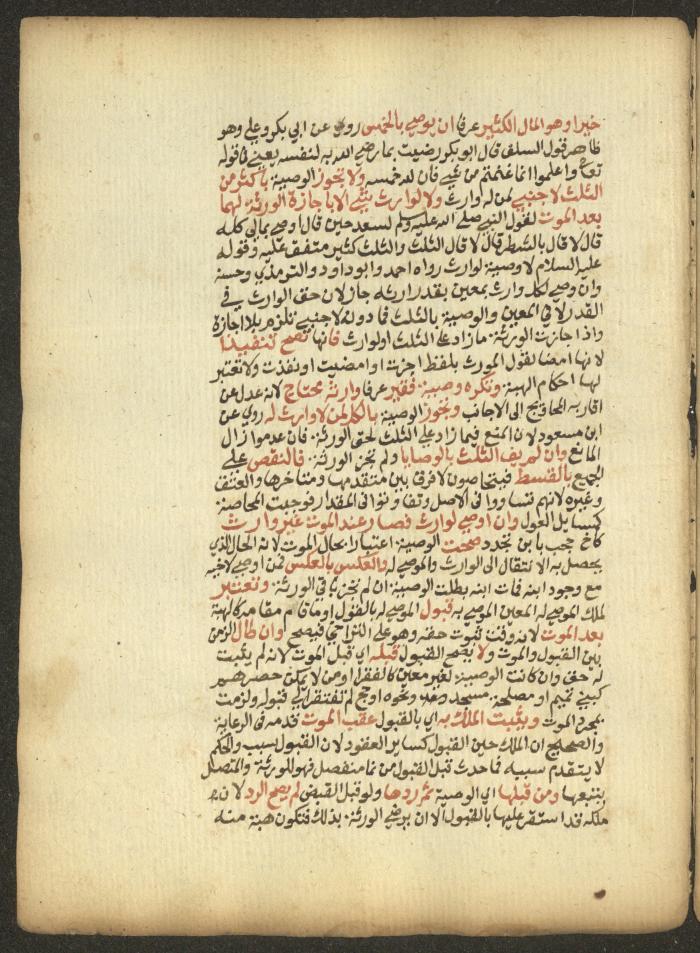 خيرا وهو المال الكثير عرفا ان يوصي بالخمس روي عن ابي بكر وعلي وهو
ظاهر قول السلف قال ابو بكر رضيت بما رضي الله به لنفسه يعني في قوله
تعا واعلموا انما غنمتم من شي فان لله خمسه ولا تجوز الوصية باكثر من
الثلث لاجنبي لمن له وارث ولا لوارث بشي الا باجازة الورثة لهما
بعد الموت لقول النبي صلى الله عليه وسلم لسعد حين قال اوصي بمالي كله
قال لا قال بالشطر قال لا قال الثلث والثلث كثير متفق عليه وقوله
عليه السلام لا وصية لوارث رواه احمد وابو داود والترمذي وحسنه
وان وصى لكل وارث بمعين بقدر ارثه جاز لان حق الوارث في
القدر لا في المعين والوصية بالثلث فما دونه لاجنبي تلزم بلا اجازة
واذا اجازت الورثة ما زاد على الثلث او لوارث فانها تصح تنفيذا
لانها امضا لقول المورث بلفظ اجزت او امضيت او نفذت ولا تعتبر
لها احكام الهبة وتكره وصية فقير عرفا وارثه محتاج لانه عدل عن
اقاربه المحاويج الى الاجانب وتجوز الوصية بالكل لمن لا وارث له روي عن
ابن مسعود لان المنع فيما زاد على الثلث لحق الورثة فان عدموا زال
المانع وان لم يف الثلث بالوصايا ولم تجز الورثة فالنقص على
الجميع بالقسط فيتحاصون لا فرق بين متقدمها ومتاخرها والعتق
وغيره لانهم تساووا في الاصل وتفاوتوا في المقدار فوجبت المحاصة
كمسايل العول وان اوصى لوارث فصار عند الموت غير وارث
كاخ حجب بابن تجدد صحت الوصية اعتبارا بحال الموت لانه الحال الذي
يحصل به الانتقال الى الوارث والموصى له والعكس بالعكس فمن اوصى لاخيه
مع وجود ابنه فمات ابنه بطلت الوصية ان لم تجز باقي الورثة وتعتبر
لملك الموصى له المعين الموصى به قبول الموصى له بالقول او ما قام مقامه كالهبة
بعد الموت لانه وقت ثبوت حقه وهو على التراخي فيصح وان طال الزمن
بين القبول والموت ولا يصح القبول قبله اي قبل الموت لانه لم يثبت
له حق وان كانت الوصية لغير معين كالفقرا او من لا يمكن حصرهم
كبني تميم او مصلحة مسجد ونحوه او حج لم تفتقر الى قبول ولزمت
بمجرد الموت ويثبت الملك به اي بالقبول عقب الموت قدمه في الرعاية
والصحيح ان الملك حين القبول كساير العقود لان القبول سبب والحكم
لا يتقدم سببه فما حدث قبل القبول من نما منفصل فهو للورثة والمتصل
يتبعها ومن قبلها اي الوصية ثم ردها ولو قبل القبض لم يصح الرد لان
ملكه قد استقر عليها بالقبول الا ان يرضى الورثة بذلك فتكون هبة منه